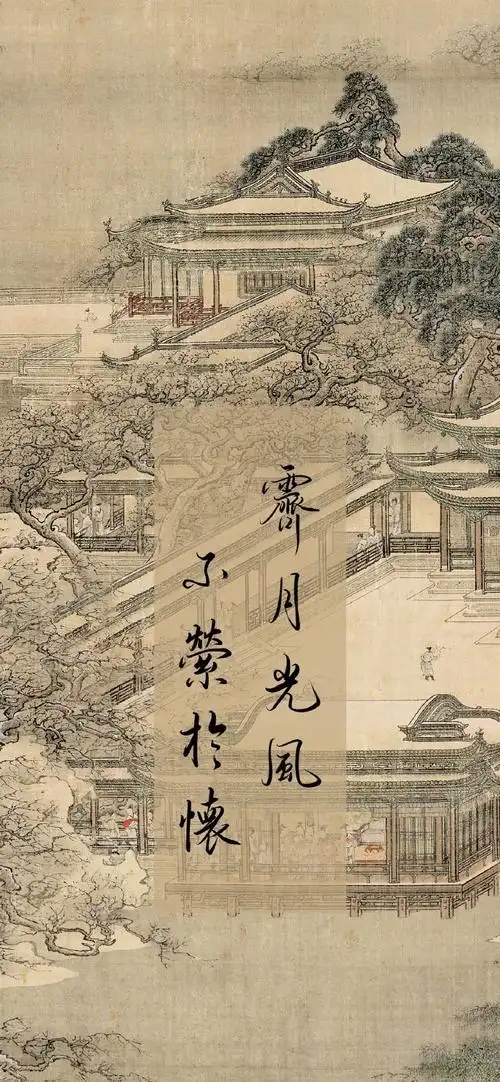 霽月光風
不縈於懷